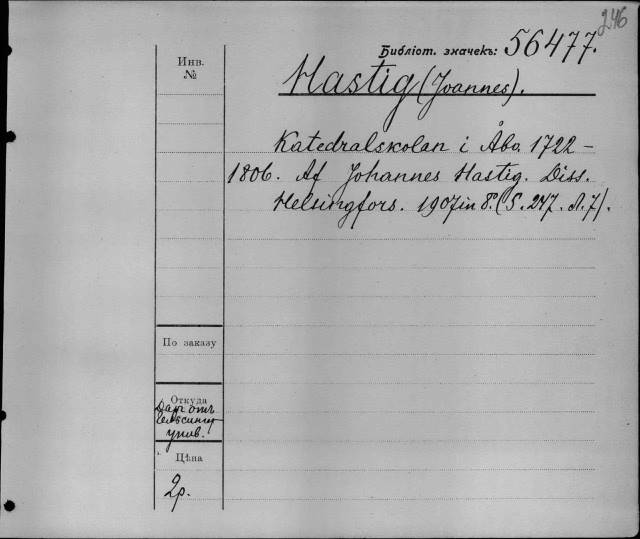 246
Инв.
№
Библіот. значекъ: 56477.
Hastig (Joannes).
Katedralskolan i Åbo. 1722 –
1806. Af Johannes Hastig. Diss.
Helsingfors. 1907 in 8º. (S. 247. Л. 7).
По заказу
Откуда
Даръ отъ
унив.
Цѣна
2р.